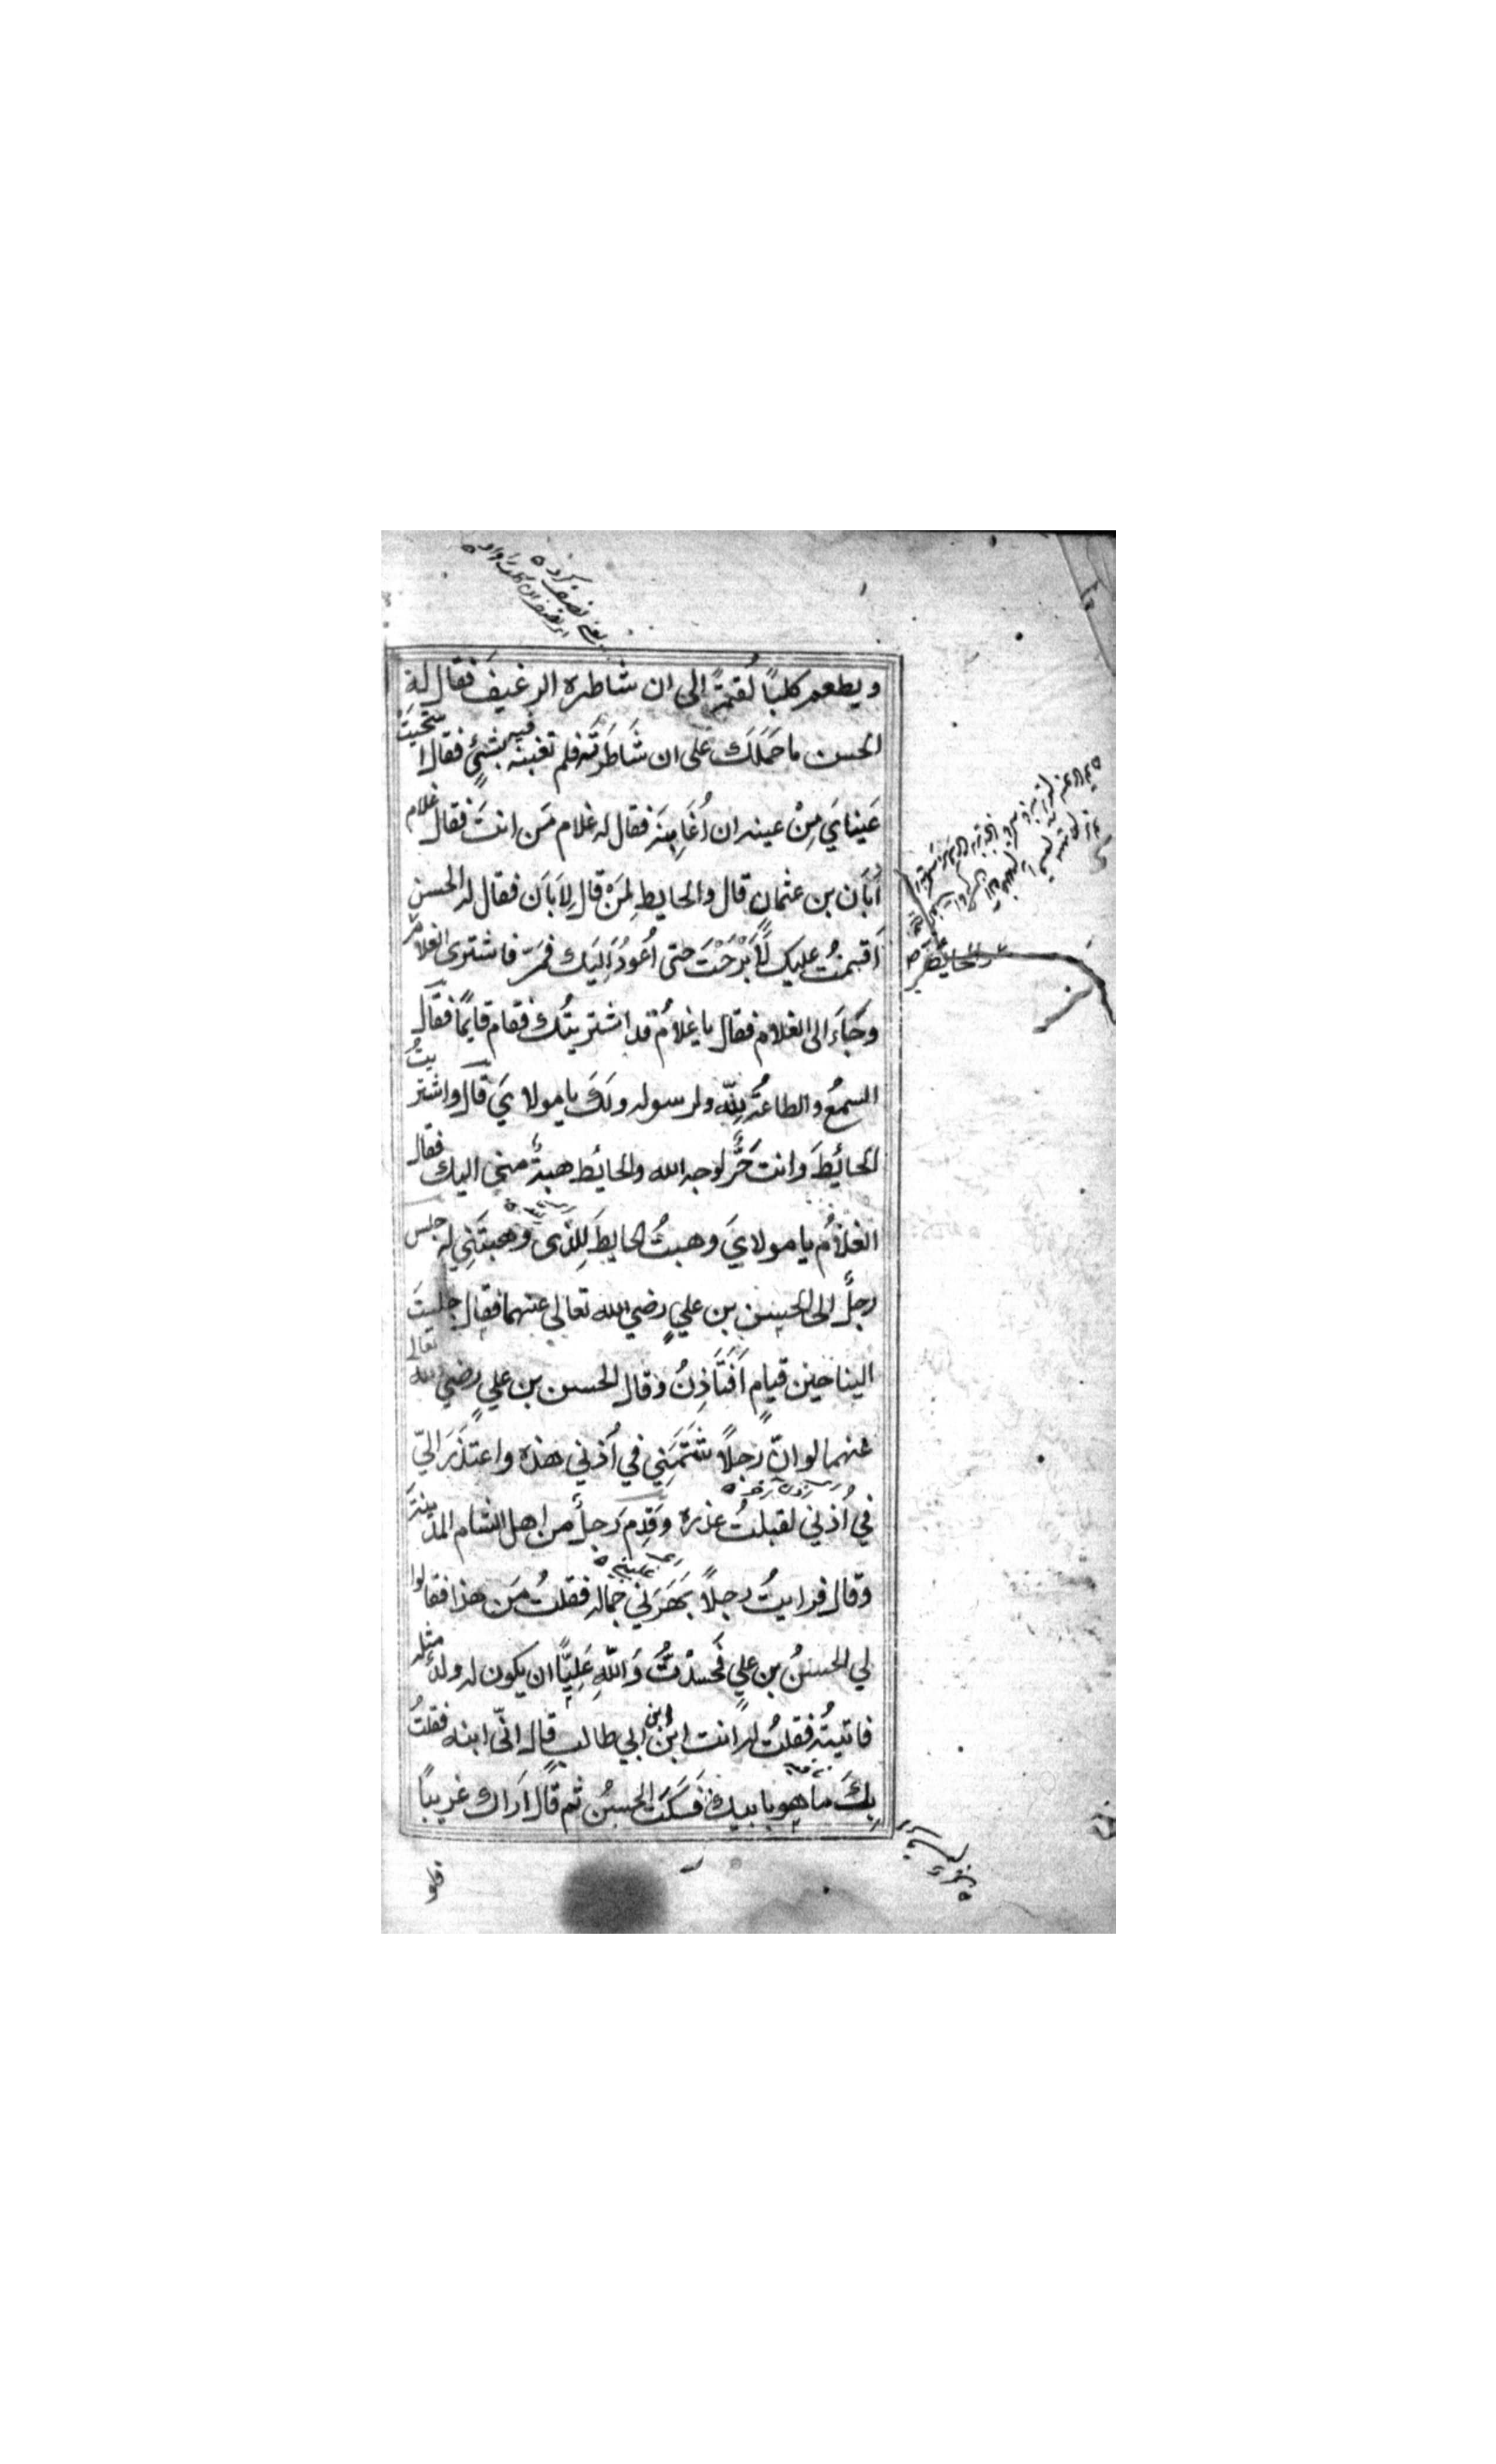 ويطعم كلبًا لُقمةً الى ان شاطره الرغيفَ فقال له
الحسن ما حَمَلَك على ان شَاطَرْتَه فلم تغبنه فيه بشيءٍ فقال استحيَتْ
عَينايَ مِنْ عينه ان أُغَابِنَه فقال له غلام مَن انتَ فقال غلام
أَبَان بن عثمان قال والحايط لِمَنْ قال لِاَبَان فقال له الحسن
اَقسمتُ عليك لَا بَرِحْتَ حتى اَعُودُ اِلَيك فمَرّ فاشترى الغلام
وجَاءَ الى الغلام فقال يا غلامُ قد اشتريتُك فقام قايمًا فقال
السمعُ والطاعةُ لِلّه ولرسوله ولَكَ يا مولايَ قال واشتريتُ
الحائطَ وانت حُرٌّ لوجه الله والحائط هبةٌ مني اليك فقال
الغلامُ يا مولايَ وهبتُ الحايطَ لِلَّذى وهبتَنِي له جلس
رجلٌ الى الحسن بن عليٍ رضي الله تعالى عنهما فقال جلستَ
الينا حين قيامٍ اَفَتَأذِنُ وقال الحسن بن عليٍ رضي الله تعالى
عنهما لو انّ رجلًا شَتَمَنِي في اُذني هذه واعتذَرَ اليّ
في اُذني لقبلتُ عذره وقَدِم رجلٌ من اهل الشام المدينةَ
وقال فرايتُ رجلًا بَهَرَني جماله فقلتُ مَن هذا فقالوا
لي الحسنُ بن عليٍ فحسدْتُ وَاللّهِ عَلِيًّا ان يكون له ولدٌ مثله
فاتيتُه فقلتُ له انت ابنُ ابن ابي طالبٍ قال انّي ابنه فقلتُ
بِكَ ما هو بابيك فسَكَتَ الحسنُ ثم قال اَراك غريبًا